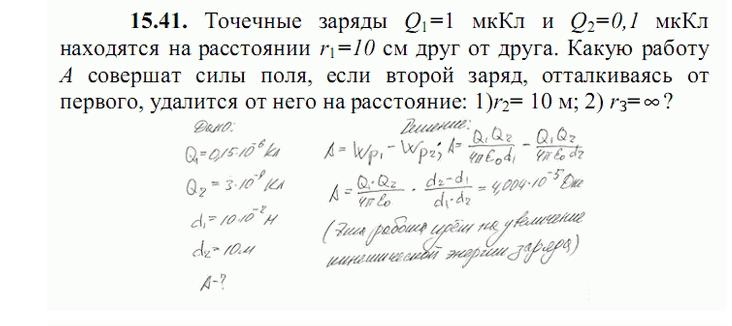 15.41. Точечные заряды Q₁=1 мкКл и Q₂=0,1 мкКл
находятся на расстоянии r₁=10 см друг от друга. Какую работу
A совершат силы поля, если второй заряд, отталкиваясь от
первого, удалится от него на расстояние: 1)r₂= 10 м; 2) r₃=∞?
Дано:
Q₁=0,15·10⁻⁶ Кл
Q₂ = 3·10⁻⁹ Кл
d₁=10·10⁻² м
d₂=10м
A-?
Решение:
A = Wp₁ - Wp₂; A = Q₁Q₂/4πε₀d₁ - Q₁Q₂/4πε₀d₂
A = Q₁·Q₂/4πε₀ · d₂-d₁/d₁·d₂ = 4,004·10⁻⁵ Дж
(Эта работа идёт на увеличение
кинетической энергии заряда)